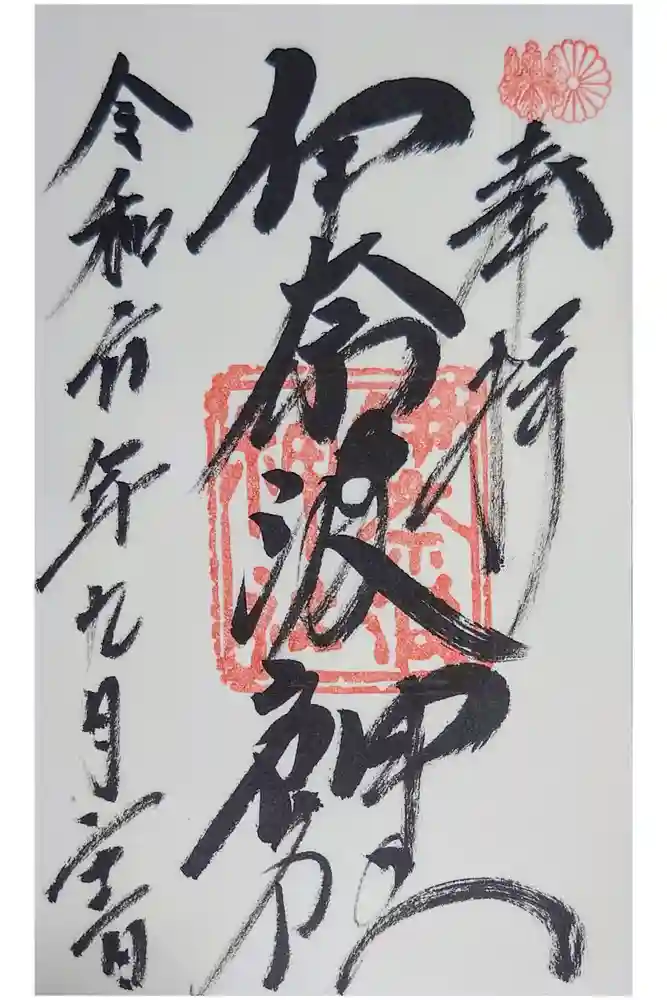 奉拝
伊奈波神社
令和六年九月二十二日